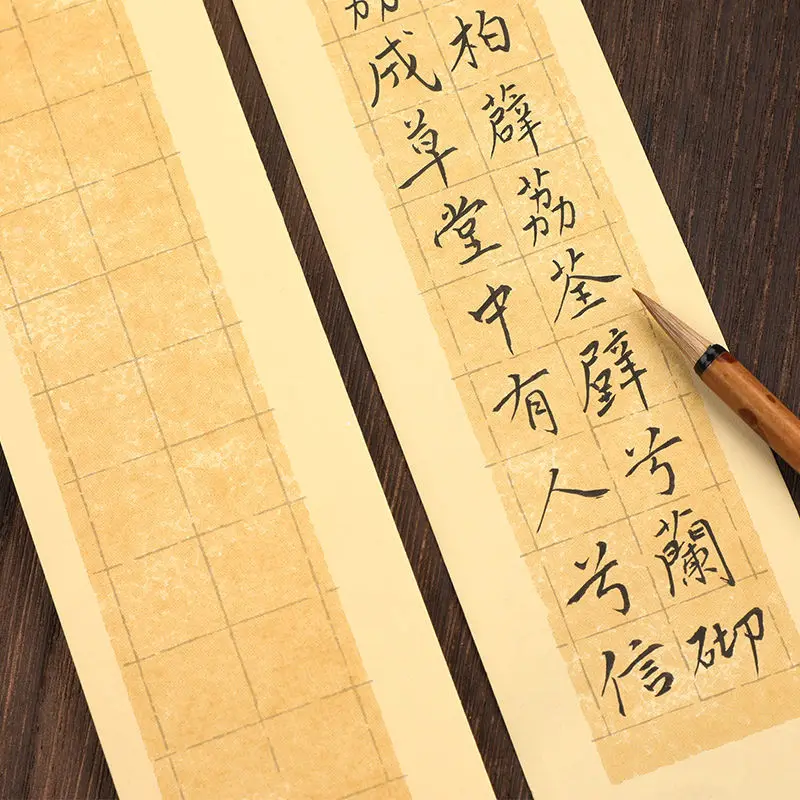 柏薜荔荃壁兮蘭砌
荔成草堂中有人兮信